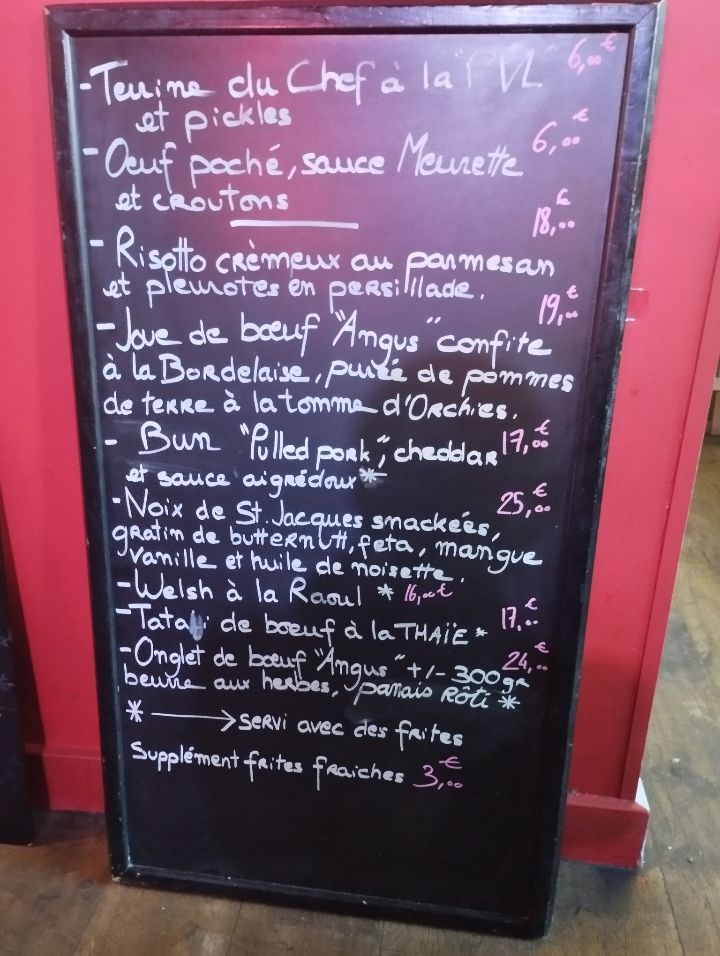 - Terrine du Chef à la "PVL" 6,00€
et pickles
- Oeuf poché, sauce Meurette 6,00€
et croutons
- Risotto crèmeux au parmesan 18,00€
et pleurotes en persillade.
- Joue de bœuf "Angus" confite 19,00€
à la Bordelaise, purée de pommes
de terre à la tomme d'Orchies.
- Bun "Pulled pork", cheddar 17,00€
et sauce aigrédoux *
- Noix de St. Jacques snackées, 25,00€
gratin de butternutt, feta, mangue
vanille et huile de noisette.
- Welsh à la Raoul * 16,00€
- Tataki de bœuf à la THAÏE * 17,00€
- Onglet de bœuf "Angus" +/- 300gr 24,00€
beurre aux herbes, panais Rôti *
* → servi avec des frites
Supplément frites fraiches 3,00€